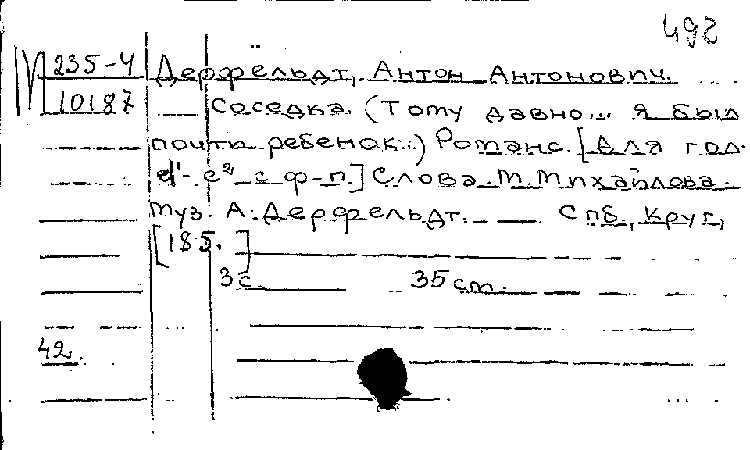 492
М 235-4 Дерфельдт, Антон Антонович.
10187 Соседка. (Тому давно... я был
почти ребенок..) Романс. [Для гол.
d'-e² с ф-п.] Слова М. Михайлова.
Муз. А. Дерфельдт. — Спб, Круг,
[185. ]
3 с. 35 cm.
42.